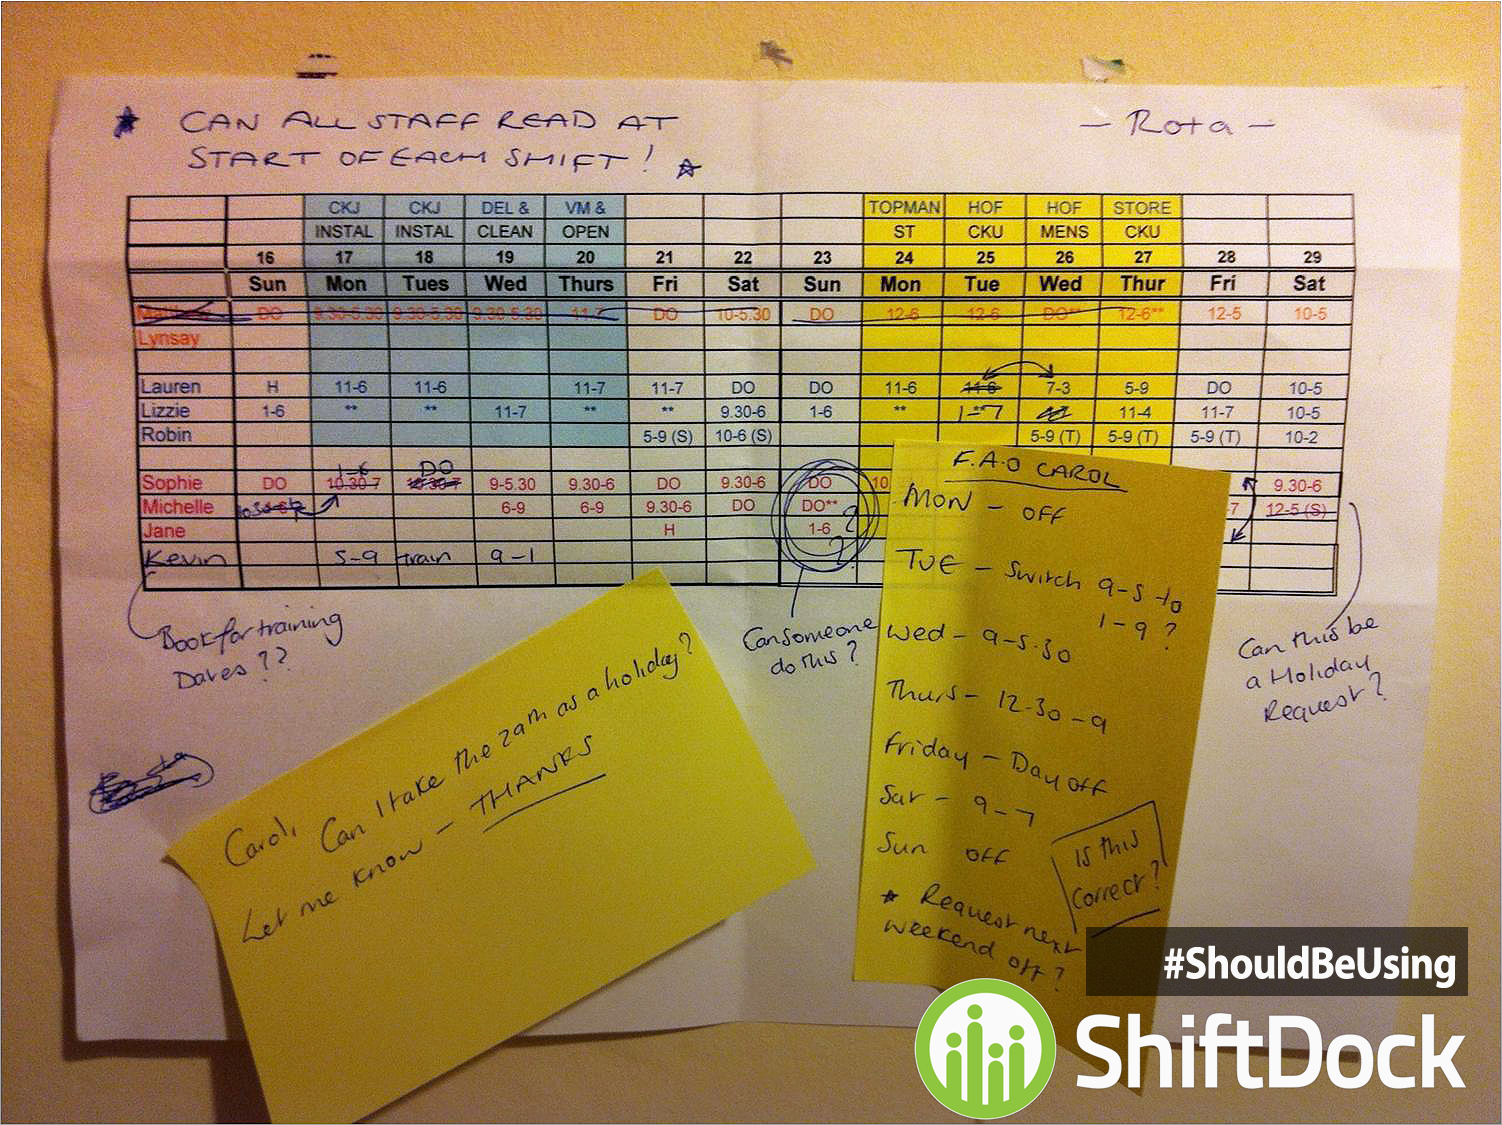 ★ CAN ALL STAFF READ AT
START OF EACH SHIFT! ★
- Rota -
CKJ CKJ DEL & VM & TOPMAN HOF HOF STORE
INSTAL INSTAL CLEAN OPEN ST CKU MENS CKU
16 17 18 19 20 21 22 23 24 25 26 27 28 29
Sun Mon Tues Wed Thurs Fri Sat Sun Mon Tue Wed Thur Fri Sat
DO 9.30-5.30 9.30-5.30 9.30-5.30 11-7 DO 10-5.30 DO 12-6 12-6 DO** 12-6** 12-5 10-5
Lynsay
Lauren H 11-6 11-6 11-7 11-7 DO DO 11-6 11-6 7-3 5-9 DO 10-5
Lizzie 1-6 ** ** 11-7 ** ** 9.30-6 1-6 ** 1-7 11-4 11-7 10-5
Robin 5-9 (S) 10-6 (S) 5-9 (T) 5-9 (T) 5-9 (T) 10-2
1-6 DO
Sophie DO 10.30-7 10.30-7 9-5.30 9.30-6 DO 9.30-6 DO 10 9.30-6
Michelle 6-9 6-9 9.30-6 DO DO** -7 12-5 (S)
Jane H 1-6 ?
Kevin 5-9 train 9-1 ?
Book for training
Dates ??
Can someone
do this?
Can this be
a Holiday
Request?
Carol,
Can I take the 29th as a holiday?
Let me know - THANKS
F.A.O CAROL
MON - OFF
TUE - Switch 9-5 to
1-9 ?
Wed - 9-5.30
Thurs - 12.30-9
Friday - Day off
Sat - 9-7
Sun OFF
Is this
Correct?
★ Request next
weekend off?
#ShouldBeUsing
ShiftDock